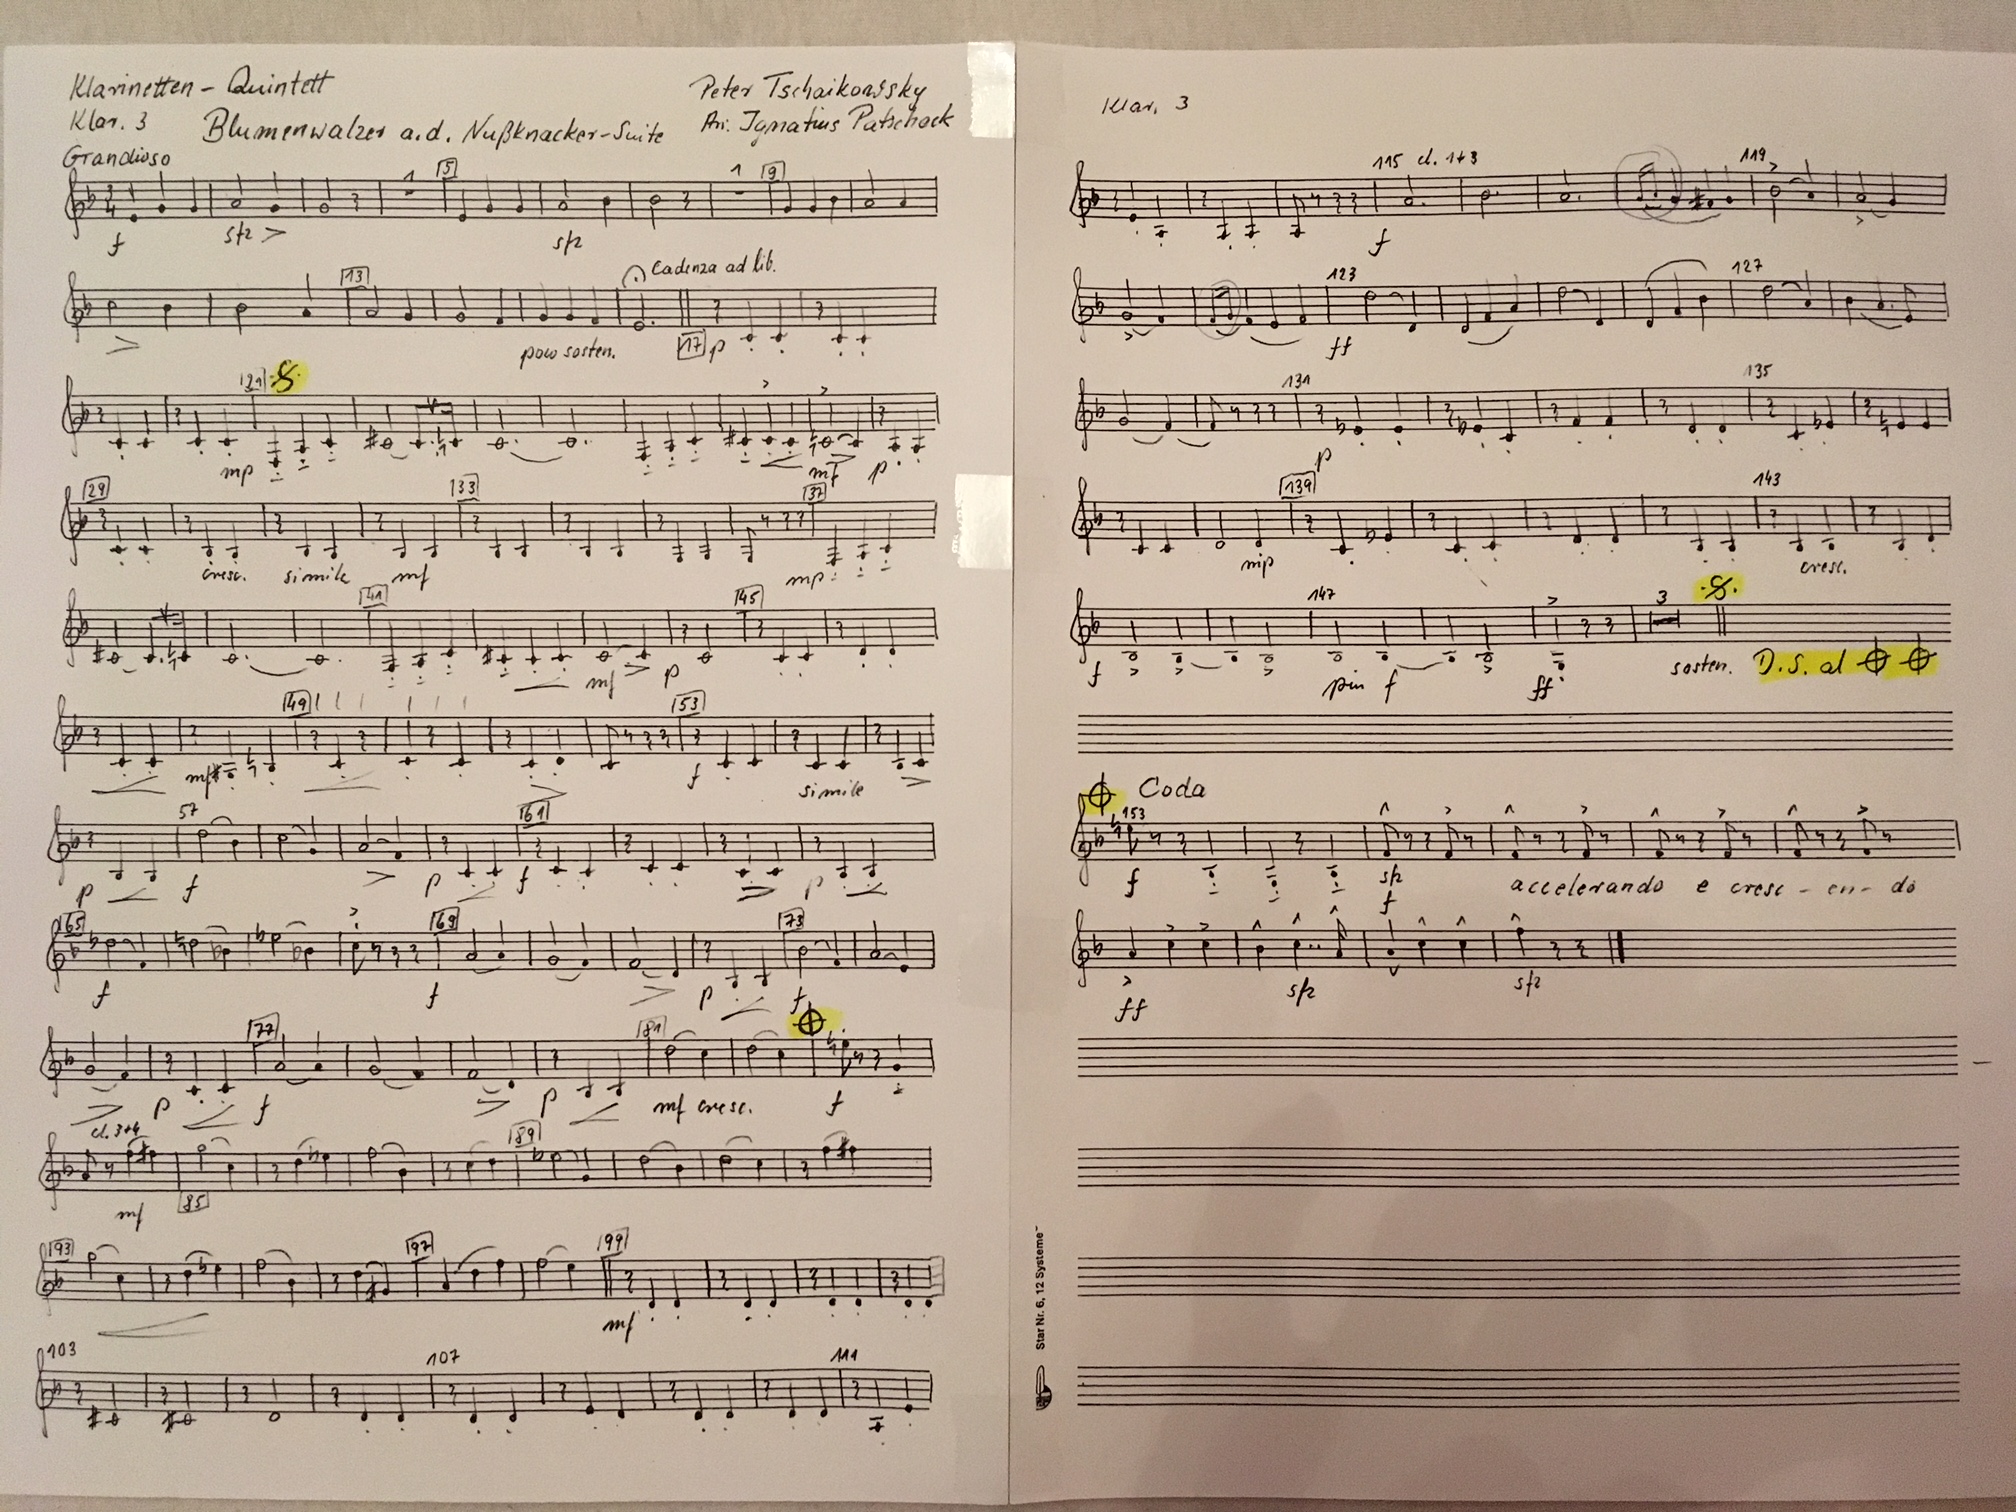 Klarinetten - Quintett
Klar. 3
Blumenwalzer a.d. Nußknacker-Suite
Peter Tschaikowssky
Arr. Ignatius Patschack
Grandioso
1 5 1 9
f sfz sfz
13 Cadenza ad lib.
poco sosten. 17 p
21
mp mf p
29 33 37
cresc. simile mf mp
41 45
mf p
49 53
mf f simile
57 61
p f p f p
65 69 73
f f p f
77 81
p f p mf cresc. f
cl. 3+4 89
mf 85
93 97 99
mf
103 107 111
Klar. 3
115 cl. 1+3 119
f
123 127
ff
131 135
p
139 143
mp cresc.
147 3
f più f ff sosten. D.S. al
Coda
153
f sfz f accelerando e cresc - en - do
ff sfz sfz
Star Nr. 6, 12 Systeme